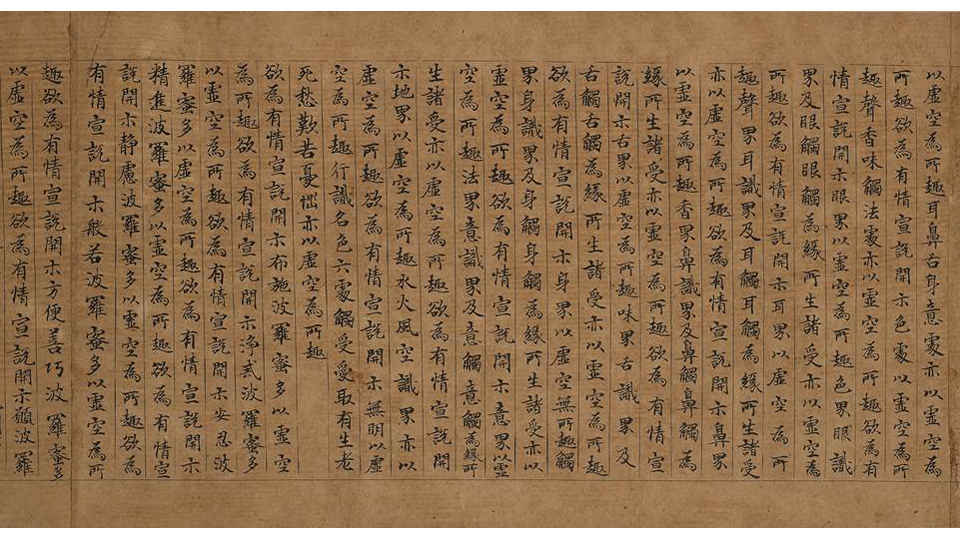 以虛空為所趣耳鼻舌身意處亦以虛空為
所趣欲為有情宣說開示色處以虛空為所
趣聲香味觸法處亦以虛空為所趣欲為有
情宣說開示眼界以虛空為所趣色界眼識
界及眼觸眼觸為緣所生諸受亦以虛空為
所趣欲為有情宣說開示耳界以虛空為所
趣聲界耳識界及耳觸耳觸為緣所生諸受
亦以虛空為所趣欲為有情宣說開示鼻界
以虛空為所趣香界鼻識界及鼻觸鼻觸為
緣所生諸受亦以虛空為所趣欲為有情宣
說開示舌界以虛空為所趣味界舌識界及
舌觸舌觸為緣所生諸受亦以虛空為所趣
欲為有情宣說開示身界以虛空無所趣觸
界身識界及身觸身觸為緣所生諸受亦以
虛空為所趣欲為有情宣說開示意界以虛
空為所趣法界意識界及意觸意觸為緣所
生諸受亦以虛空為所趣欲為有情宣說開
示地界以虛空為所趣水火風空識界亦以
虛空為所趣欲為有情宣說開示無明以虛
空為所趣行識名色六處觸受愛取有生老
死愁歎苦憂惱亦以虛空為所趣
欲為有情宣說開示布施波羅蜜多以虛空
為所趣欲為有情宣說開示淨戒波羅蜜多
以虛空為所趣欲為有情宣說開示安忍波
羅蜜多以虛空為所趣欲為有情宣說開示
精進波羅蜜多以虛空為所趣欲為有情宣
說開示靜慮波羅蜜多以虛空為所趣欲為
有情宣說開示般若波羅蜜多以虛空為所
趣欲為有情宣說開示方便善巧波羅蜜多
以虛空為所趣欲為有情宣說開示願波羅